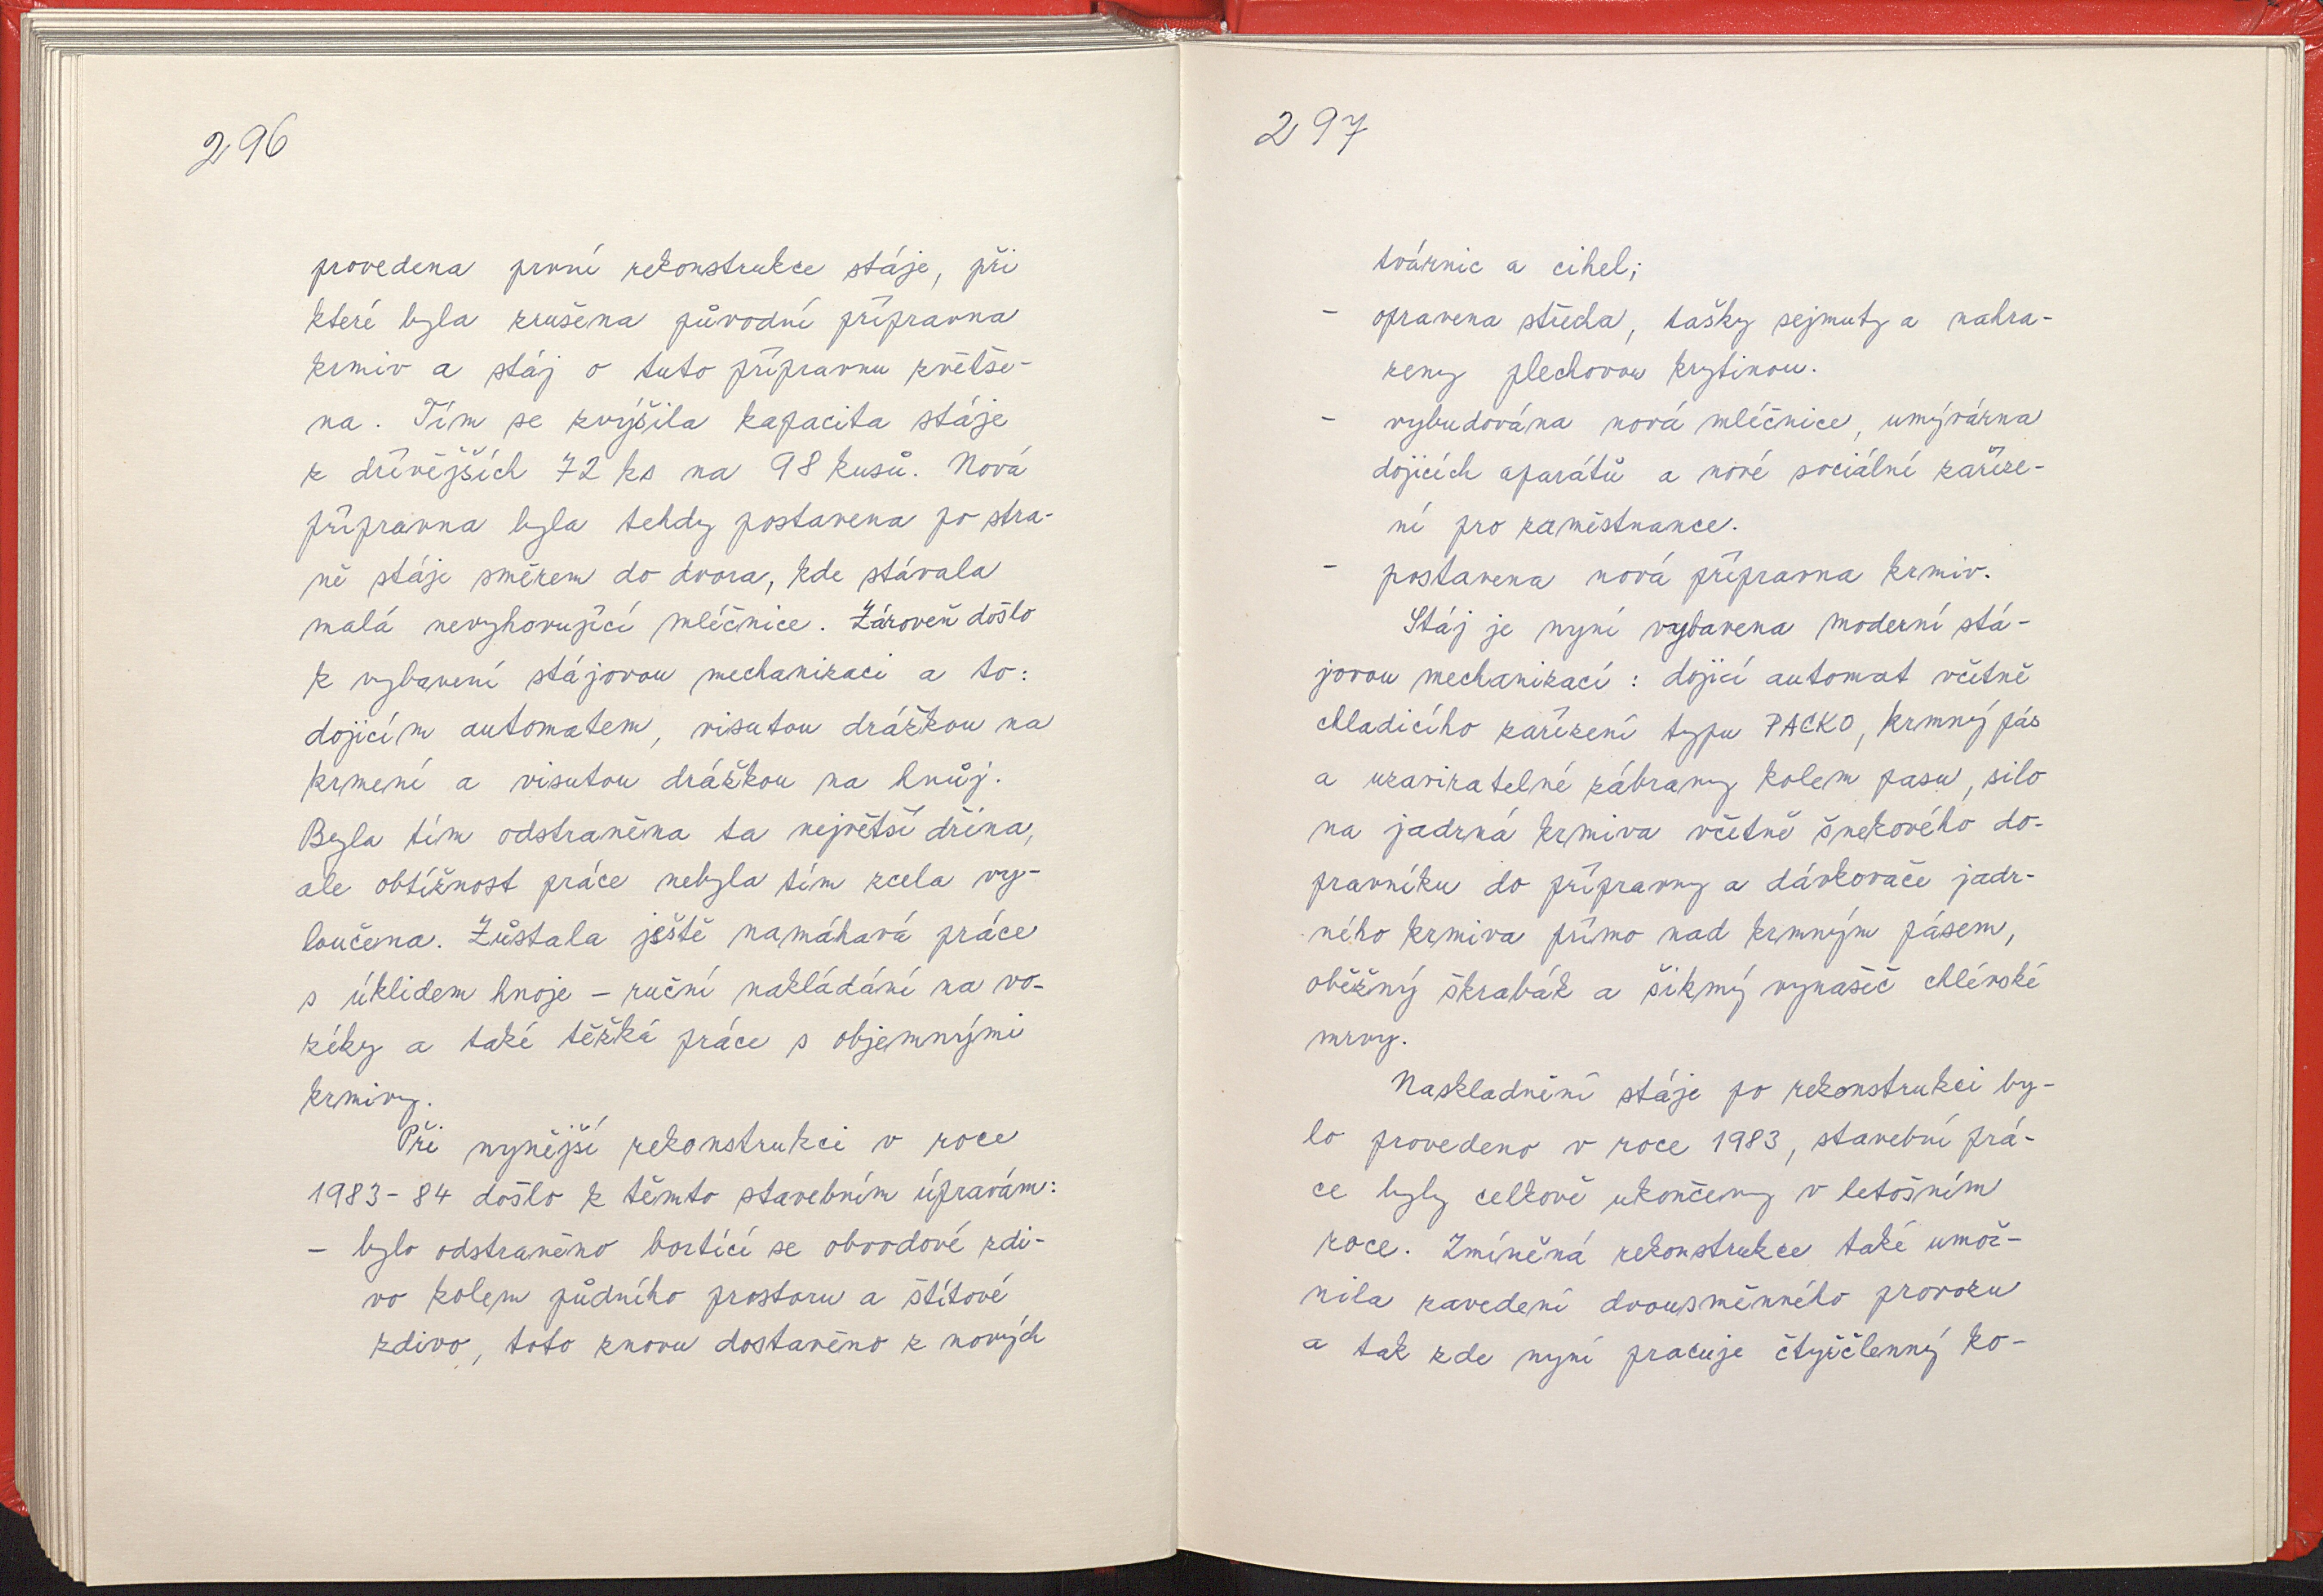 296
provedena první rekonstrukce stáje, při
které byla zrušena původní přípravna
krmiv a stáj o tuto přípravnu zvětše-
na. Tím se zvýšila kapacita stáje
z dřívějších 72 ks na 98 kusů. Nová
přípravna byla tehdy postavena po stra-
ně stáje směrem do dvora, kde stávala
malá nevyhovující mléčnice. Zároveň došlo
k vybavení stájovou mechanizací a to:
dojicím automatem, visutou drážkou na
krmení a visutou drážkou na hnůj.
Byla tím odstraněna ta největší dřina,
ale obtížnost práce nebyla tím zcela vy-
loučena. Zůstala ještě namáhavá práce
s úklidem hnoje – ruční nakládání na vo-
zíky a také těžká práce s objemnými
krmivy.
Při nynější rekonstrukci v roce
1983-84 došlo k těmto stavebním úpravám:
– bylo odstraněno bortící se obvodové zdi-
vo kolem půdního prostoru a štítové
zdivo, toto znovu dostavěno z nových
297
tvárnic a cihel;
- opravena střecha, tašky sejmuty a nahra-
zeny plechovou krytinou.
- vybudována nová mléčnice, umývárna
dojicích aparátů a nové sociální zaříze-
ní pro zaměstnance.
- postavena nová přípravna krmiv.
Stáj je nyní vybavena moderní stá-
jovou mechanizací: dojicí automat včetně
chladicího zařízení typu PACKO, krmný pás
a uzaviratelné zábrany kolem pasu, silo
na jadrná krmiva včetně šnekového do-
pravníku do přípravny a dávkovače jadr-
ného krmiva přímo nad krmným pásem,
oběžný škrabák a šikmý vynašeč chlévské
mrvy.
Naskladnění stáje po rekonstrukci by-
lo provedeno v roce 1983, stavební prá-
ce byly celkově ukončeny v letošním
roce. Zmíněná rekonstrukce také umož-
nila zavedení dvousměnného provozu
a tak zde nyní pracuje čtyřčlenný ko-